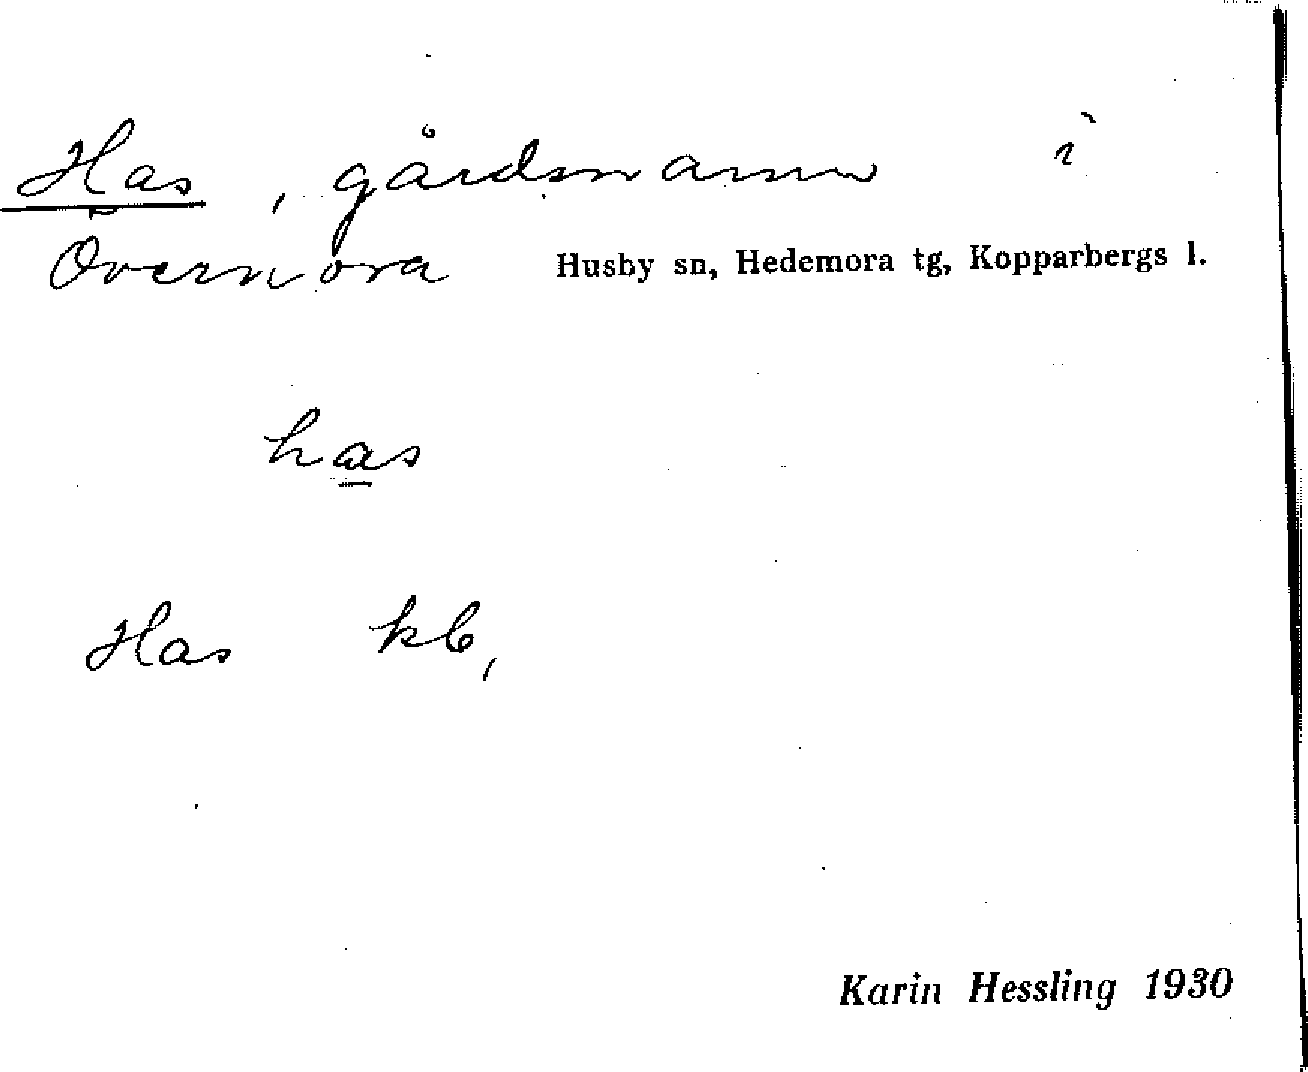 Has, gårdsnamn i
Övernora Husby sn, Hedemora tg, Kopparbergs l.
has
Has kb,
Karin Hessling 1930